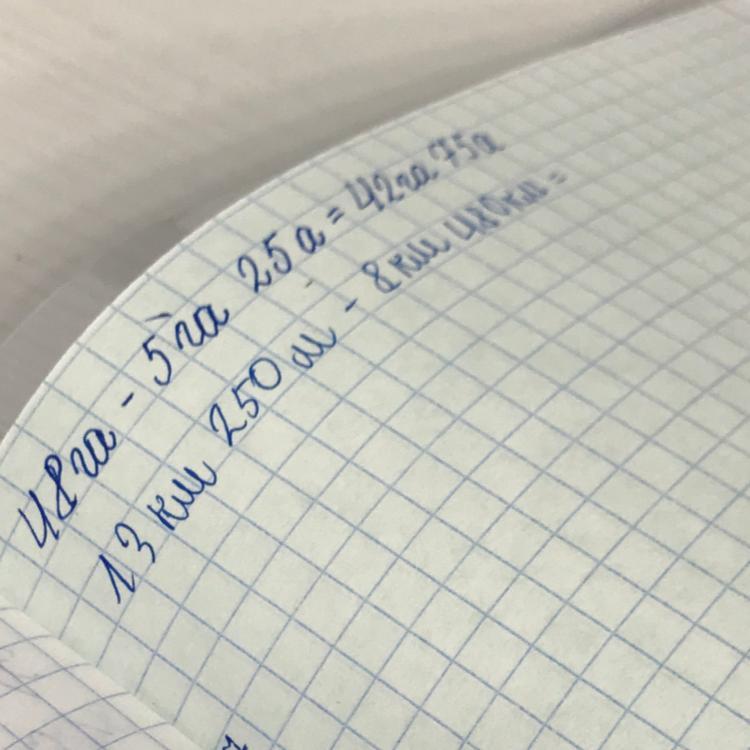 48га - 5га 25а = 42га 75а
13 км 250 м - 8км 480км =